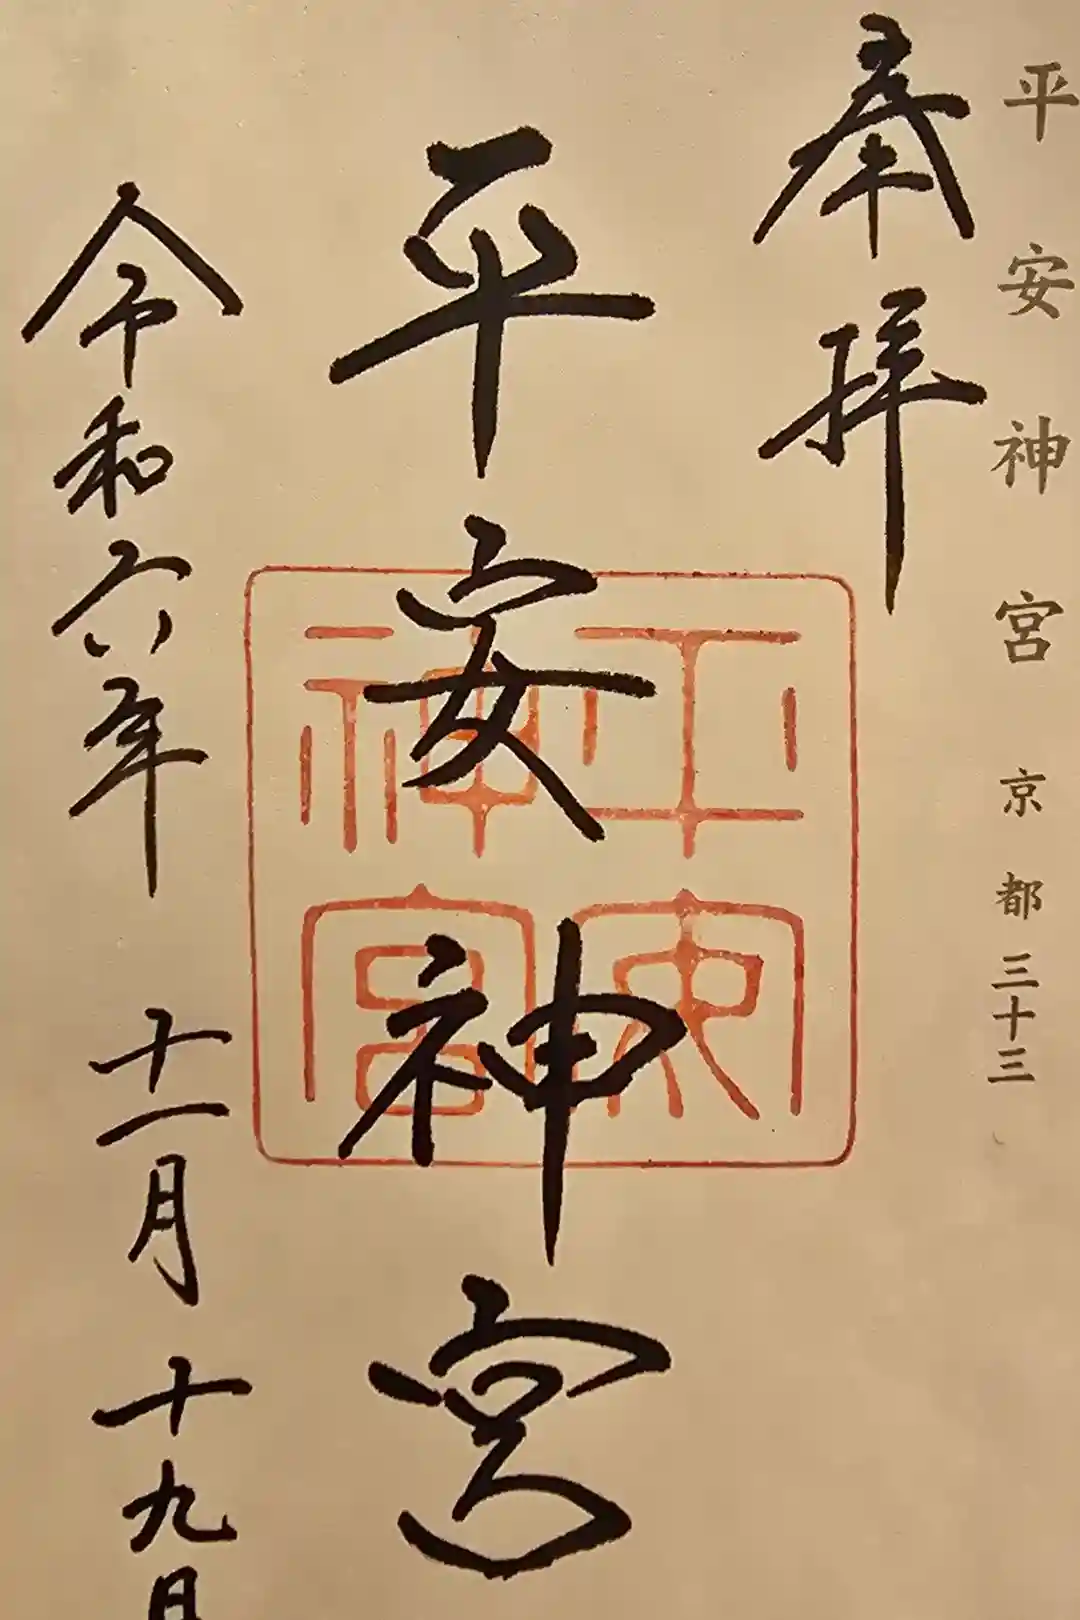 平安神宮 京都三十三
奉拝
平安神宮
平安神宮
令和六年十一月十九日